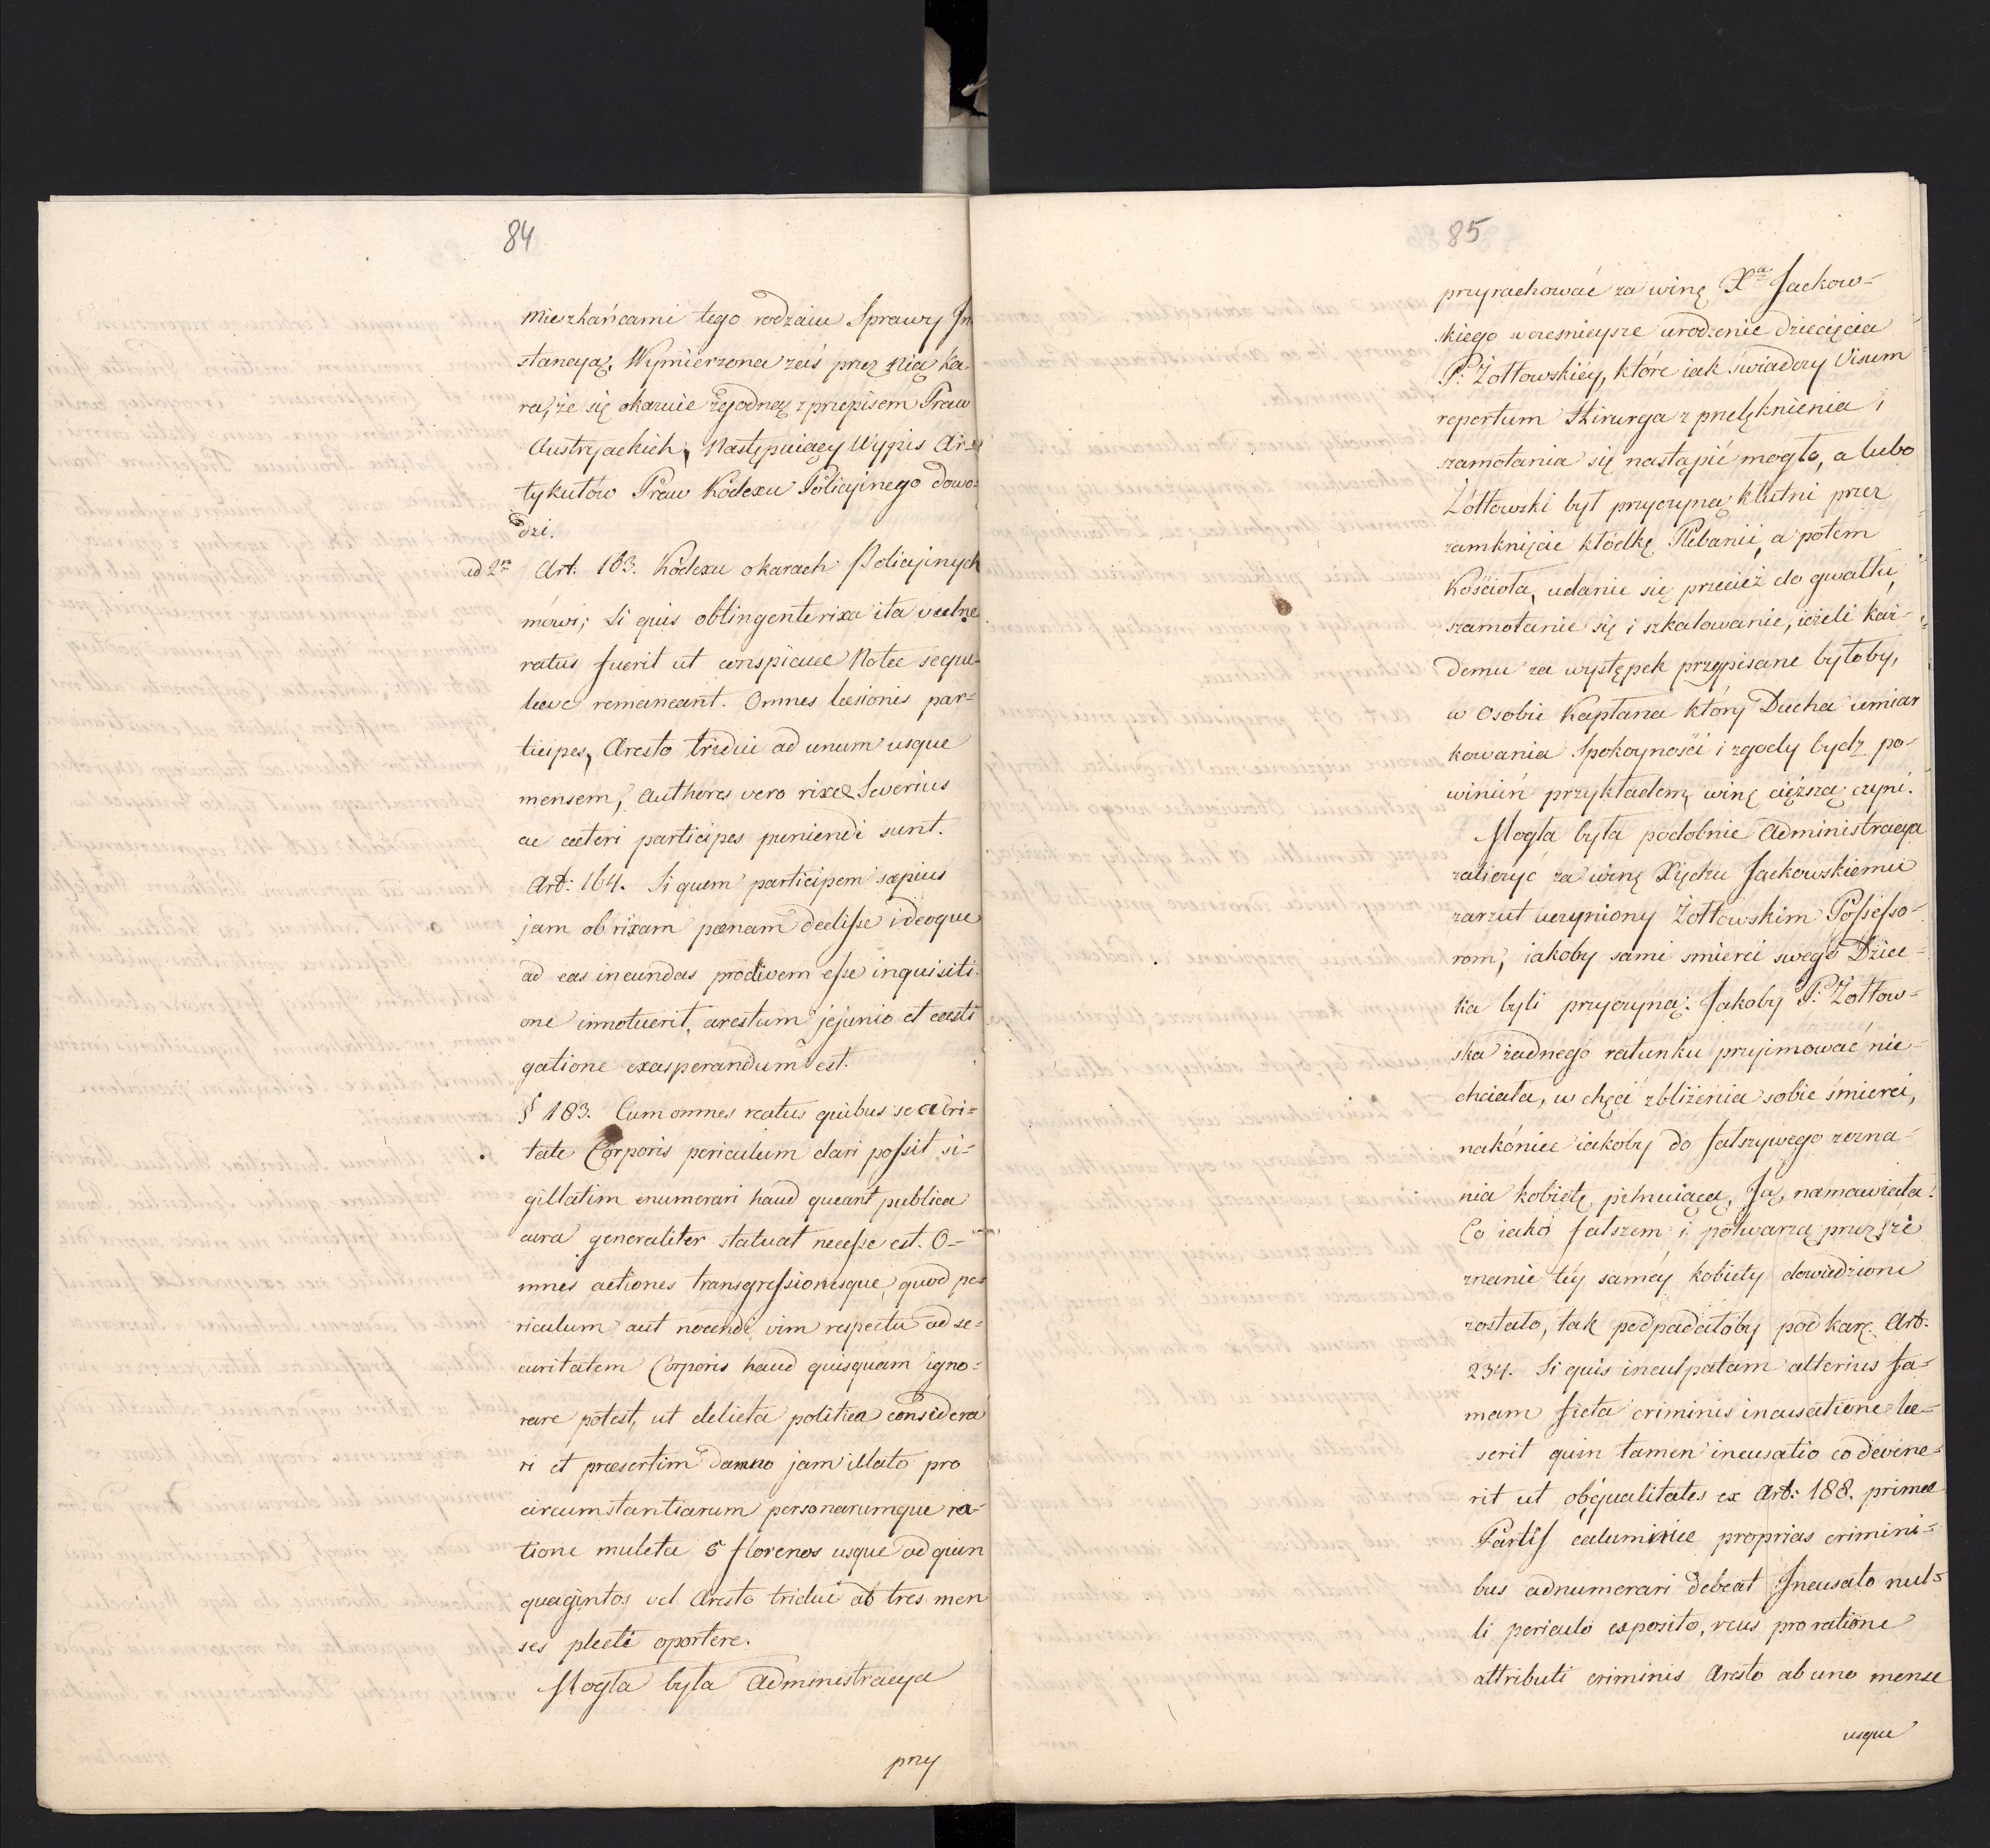 84
mieszkańcami tego rodzaiu Sprawy In
stancyą. Wymierzona zaś przez nią ka
ra, że się okazuie zgodną z przepisem Praw
Austryackich, Następuiący Wypis Ar=
tykułów Praw Kodexu Policyinego dowo=
dzi.
ad 2m Art. 163. Kodexu o karach Policyinych
mówi; Si quis obtingente rixa ita vulne
ratus fuerit ut conspicuae Notae seque=
laeve remaneant. Omnes laesionis par=
ticipes, Aresto tridui ad unum usque
mensem, Authores vero rixae Severius
ac caeteri participes puniendi sunt.
Art: 164. Si quem participem saepius
jam ob rixam paenam dedisse ideoque
ad eas ineundas proclivem esse inquisiti
one innotuerit, arestum jejunio et casti
gatione exasperandum est.
§ 183. Cum omnes reatus quibus securi=
tate Corporis periculum dari possit si=
gillatim enumerari haud queant publica
cura generaliter statuat necesse est. O=
mnes actiones transgressionesque, quod pe
riculum aut nocendi vim respectu ad se=
curitatem Corporis haud quisquam igno=
rare potest, ut delicta politica considera
ri et praesertim damno jam illato pro
circumstantiarum personarumque ra=
tione muleta 5 florenos usque ad quin
quagintos vel Aresto tridui ad tres men
ses plecti oportere.
Mogła była Administracya
przy
85
przyrachować za winę Xa Jackow=
skiego wcześnieysze urodzenie dziecięcia
P: Żołtowskiéy, które iak świadczy Visum
repertum Hirurga z przelęknienia i
szamotania się nastąpić mogło, a lubo
Żółtowski był przyczyną kłutni przez
zamknięcie kłódką Plebanii, a potem
Kościoła, udanie się przecież do gwałtu,
szamotanie się i szkalowanie, ieżeli każ=
demu za występek przypisane byłoby,
w Osobie Kapłana który Ducha umiar
kowania Spokoyności i zgody bydz po=
winień przykładem, winę cięższą czyni.
Mogła była podobnie Administracya
zaliczyć za winę Xiędzu Jackowskiemu
zarzut uczyniony Żołtowskim Possesso=
rom, iakoby sami smierci swego Dziec=
ka byli przyczyną: Jakoby P: Żołtow=
ska żadnego ratunku przyimować nie
chciała, w chęci zbliżenia sobie śmierci,
nakóniec iakoby do fałszywego zezna=
nia kobietę pilnuiącą, Ją, namawiała:
Co iako fałszem i potwarzą przez ze
znanie téy saméy kobiety dowiedzione
zostało, tak podpadałoby pod karę. Art:
234. Si quis inculpatam alterius fa=
mam ficta criminis incusatione lae=
serit quin tamen incusatio eo devene=
rit ut ob qualitates ex Art: 188. primae
Partis calumniae proprias crimini=
bus adnumerari debeat Incusato nul=
li periculo exposito, reus pro ratione
attributi criminis Aresto ab uno mense
usque